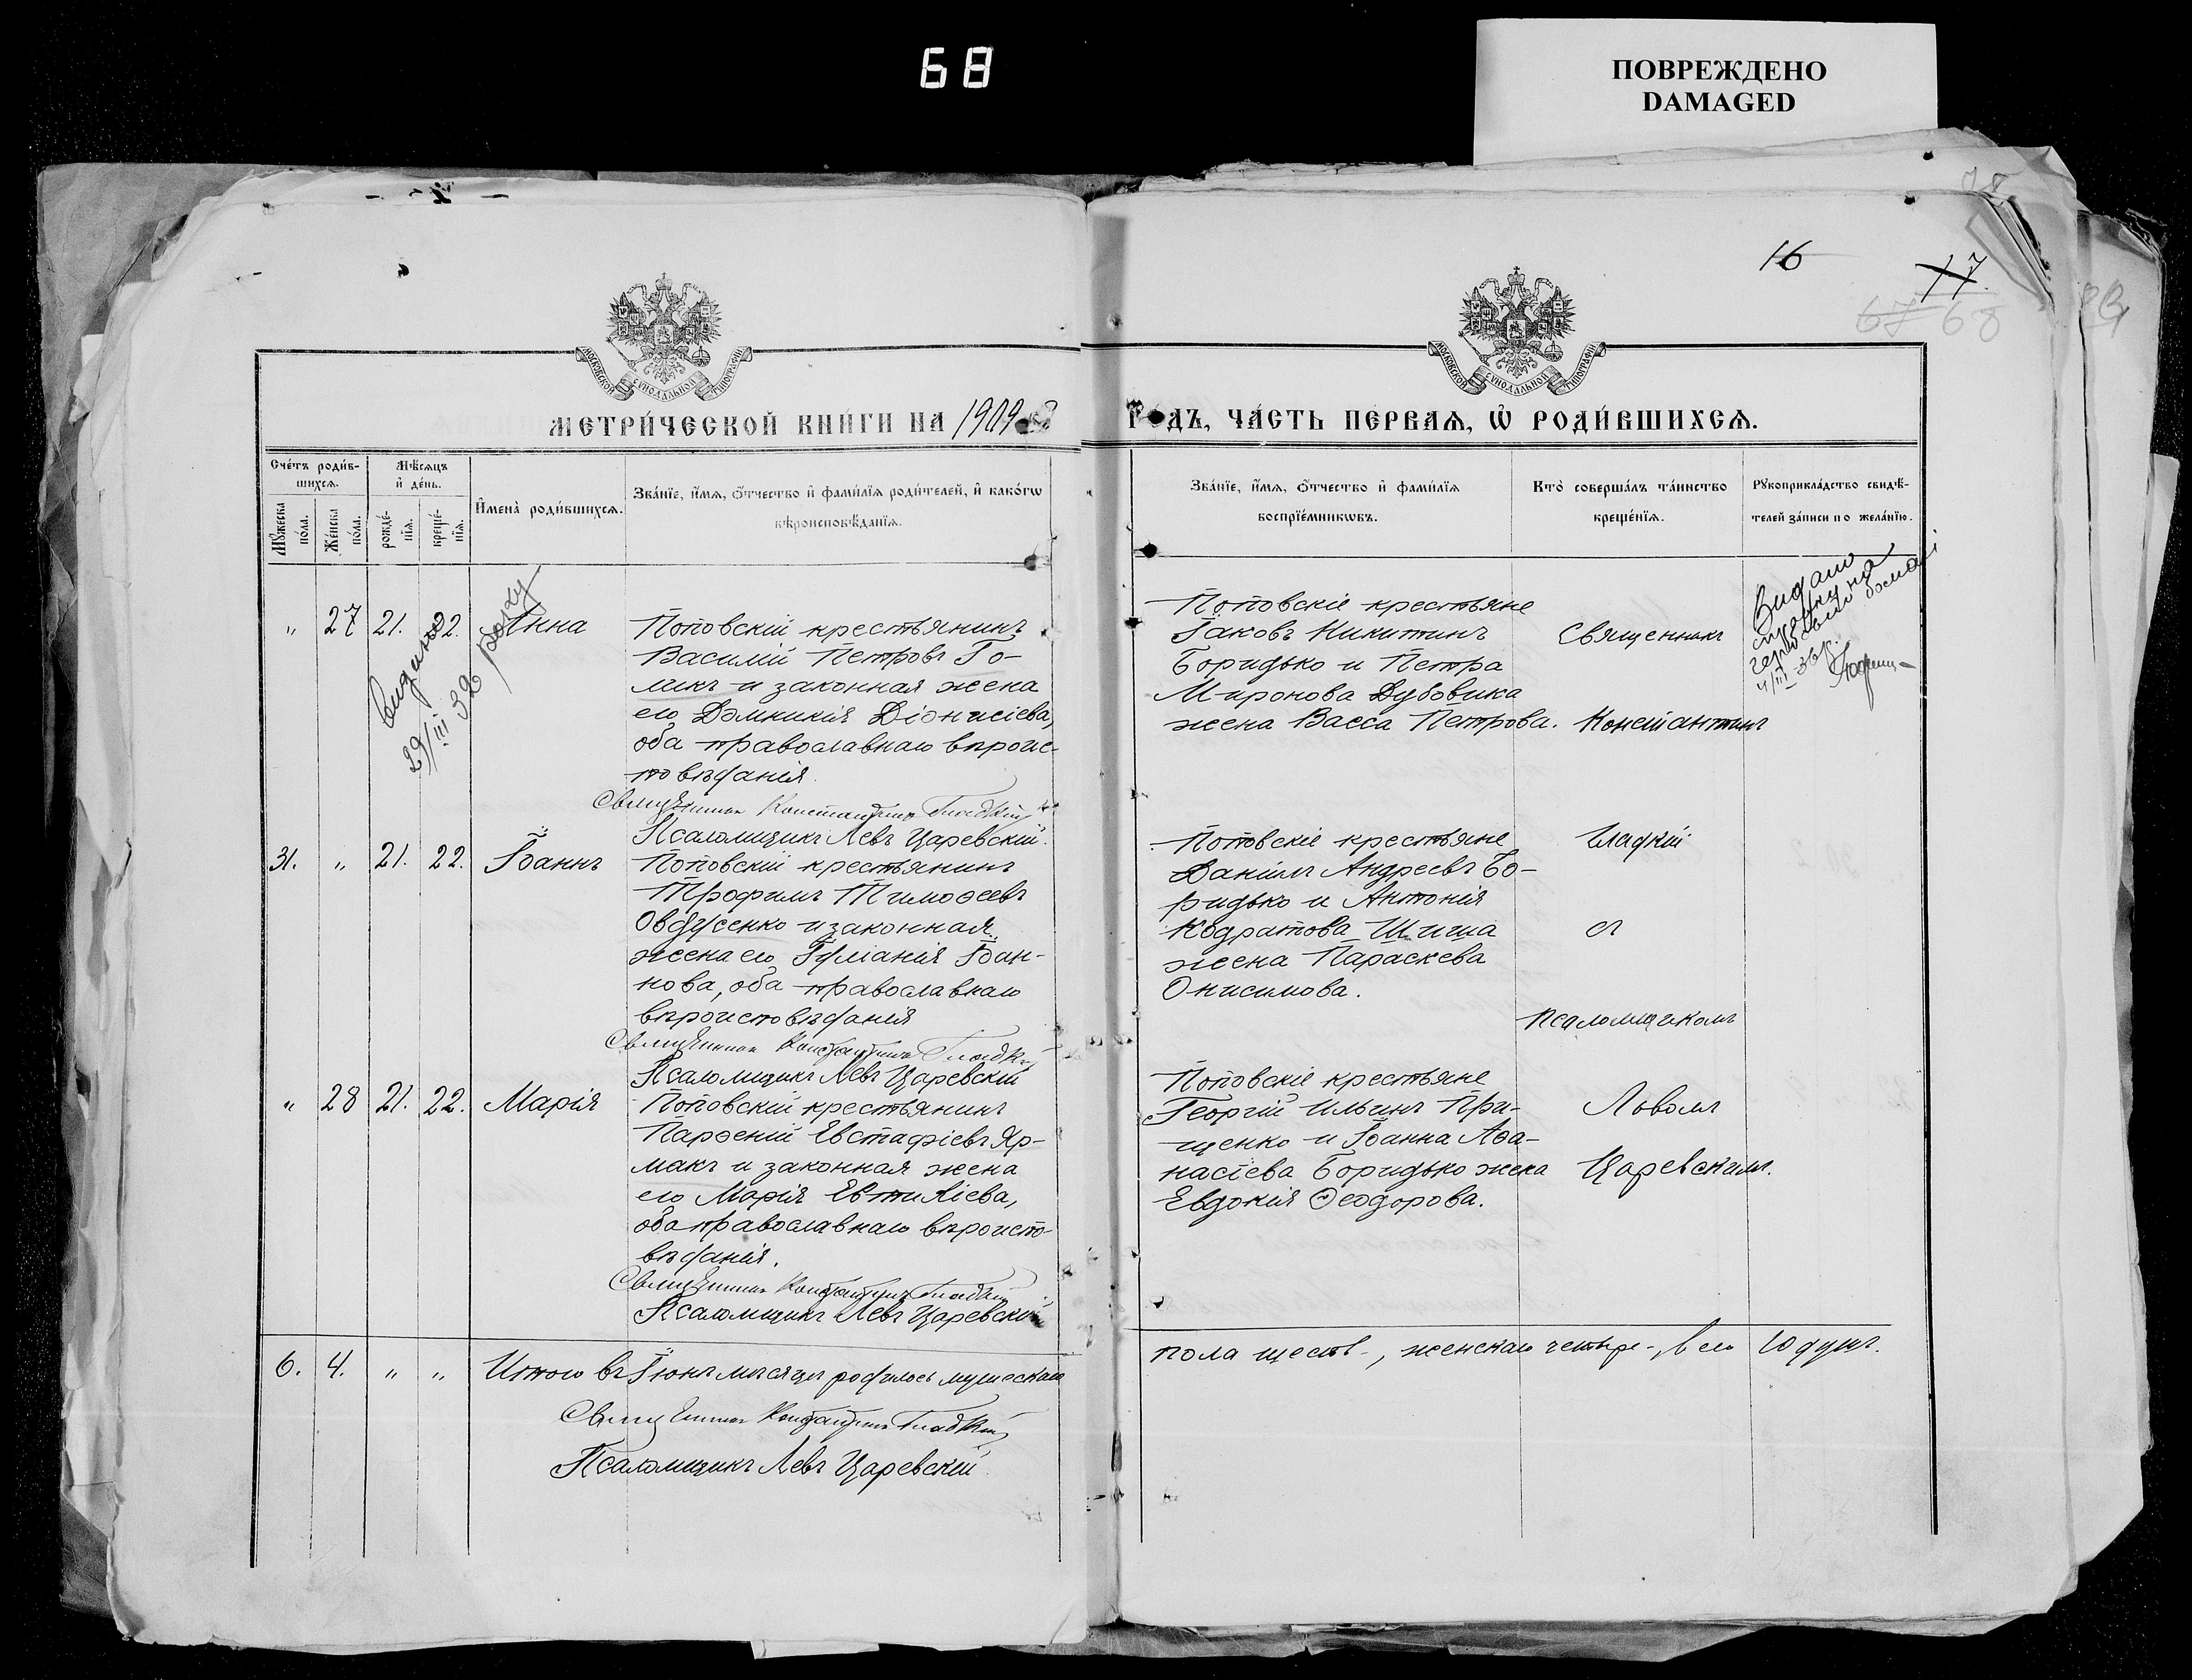 68
ПОВРЕЖДЕНО
DAMAGED
16
17
67 68
МОСКОВСКОЙ СѴНОДАЛЬНОЙ ТИПОГРАФІИ
МОСКОВСКОЙ СѴНОДАЛЬНОЙ ТИПОГРАФІИ
МЕТРИ́ЧЕСКОЙ КНИ́ГИ НА 1909
ГОДЪ, ЧА́СТЬ ПЕРВАѦ, Ѡ҆ РОДИ́ВШИХСѦ.
Счétъ роди́в-
шихсѧ.
Мꙋ́жеска по́ла.
Же́нска по́ла.
Мѣ́сѧцъ
и҆ де́нь.
рожде́-
нїѧ.
креще́-
нїѧ.
И҆мена̀ роди́вшихсѧ.
Зва́нїе, и҆́мѧ, ѻ҆́тчество и҆ фами́лїѧ роди́телей, и҆ како́гѡ
вѣроисповѣ́данїѧ.
Зва́нїе, и҆́мѧ, ѻ҆́тчество и҆ фами́лїѧ
воспрїе́мникѡвъ.
Кто̀ соверша́лъ та́инство
креще́нїѧ.
Рꙋкоприкла́дство свидѣ́-
телей за́писи по жела́нїю.
" 27 21. 22. Анна
Видано
29/III 32 року
Поповскій крестьянинъ
Василій Петровъ Го-
ликъ и законная жена
его Домникія Діонисіева,
оба православнаго вѣроис-
повѣданія.
Священникъ Константинъ Гладкій
Псаломщикъ Левъ Царевскій.
Поповскіе крестьяне
Іаковъ Никитинъ
Боридько и Петра
Миронова Дубовика
жена Васса Петрова.
Священникъ
Константинъ
Видано
справку на
4/III 36 р.
31. " 21. 22. Іоаннъ
Поповскій крестьянинъ
Трофимъ Тимоѳеевъ
Овдусенко и законная
жена его Іуліанія Іоан-
нова, оба православнаго
вѣроисповѣданія
Священникъ Константинъ Гладкій
Псаломщикъ Левъ Царевскій
Поповскіе крестьяне
Даніилъ Андреевъ Бо-
ридько и Антонія
Кодратова Шиша
жена Параскева
Онисимова.
Гладкій
съ
псаломщикомъ
" 28 21. 22. Марія
Поповскій крестьянинъ
Парѳеній Евстафіевъ Яр-
макъ и законная жена
его Марія Евтихіева,
оба православнаго вѣроиспо-
вѣданія.
Священникъ Константинъ Гладкій
Псаломщикъ Левъ Царевскій
Поповскіе крестьяне
Георгій Ильинъ При-
щенко и Іоанна Аѳа-
насіева Боридько жена
Евдокія Ѳеодорова.
Львомъ
Царевскимъ.
6. 4. " " Итого въ Іюнѣ мѣсяцѣ родилось мужескаго
пола шесть, женскаго четыре, всего 10 душъ.
Священникъ Константинъ Гладкій
Псаломщикъ Левъ Царевскій.